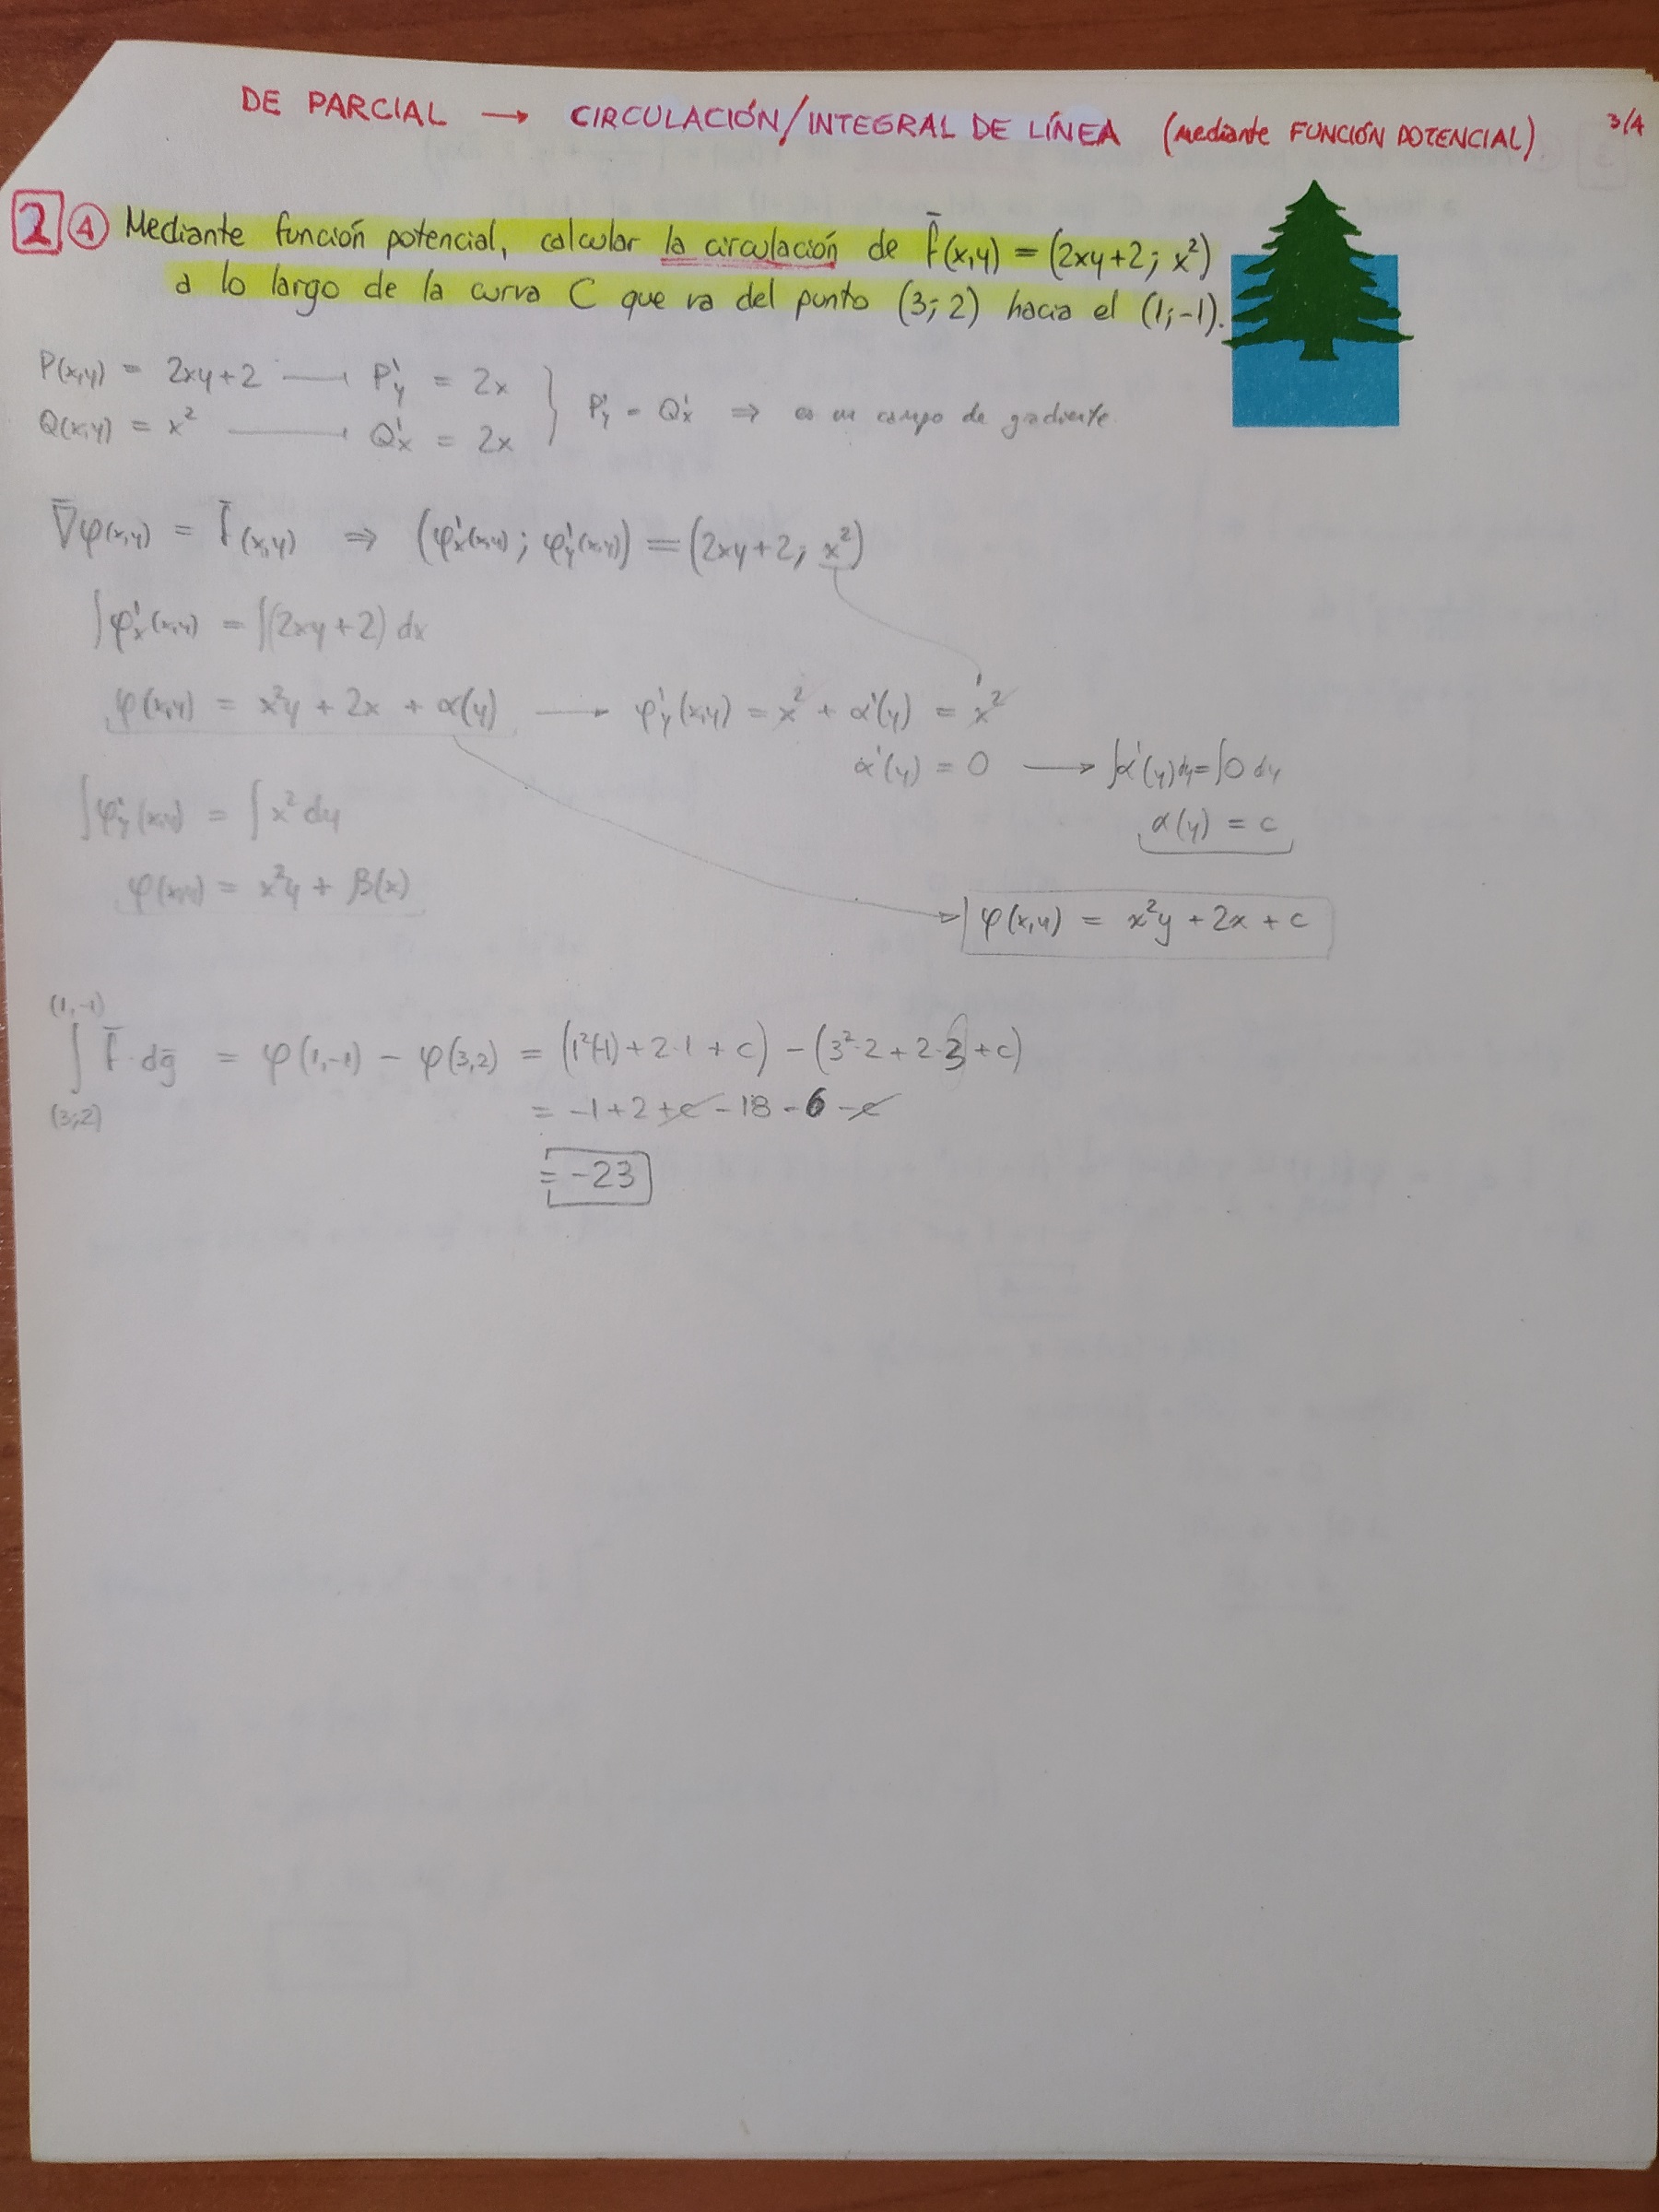 DE PARCIAL → CIRCULACIÓN/INTEGRAL DE LÍNEA (mediante FUNCIÓN POTENCIAL) 3/4
2 4 Mediante función potencial, calcular la circulación de f̄(x,y) = (2xy+2; x²)
a lo largo de la curva C que va del punto (3;2) hacia el (1;-1).
P(x,y) = 2xy+2 → P'y = 2x
Q(x,y) = x² → Q'x = 2x } P'y = Q'x ⇒ es un campo de gradiente
∇̄φ(x,y) = f̄(x,y) ⇒ (φ'x(x,y); φ'y(x,y)) = (2xy+2; x²)
∫φ'x(x,y) = ∫(2xy+2) dx
φ(x,y) = x²y + 2x + α(y) → φ'y(x,y) = x² + α'(y) = x²
α'(y) = 0 → ∫α'(y)dy = ∫0 dy
∫φ'y(x,y) = ∫x² dy
α(y) = c
φ(x,y) = x²y + β(x)
φ(x,y) = x²y + 2x + c
(1,-1)
∫ f̄·dḡ = φ(1,-1) - φ(3,2) = (1²(-1)+2·1+c) - (3²·2+2·3+c)
(3;2)
= -1+2+c-18-6-c
= -23